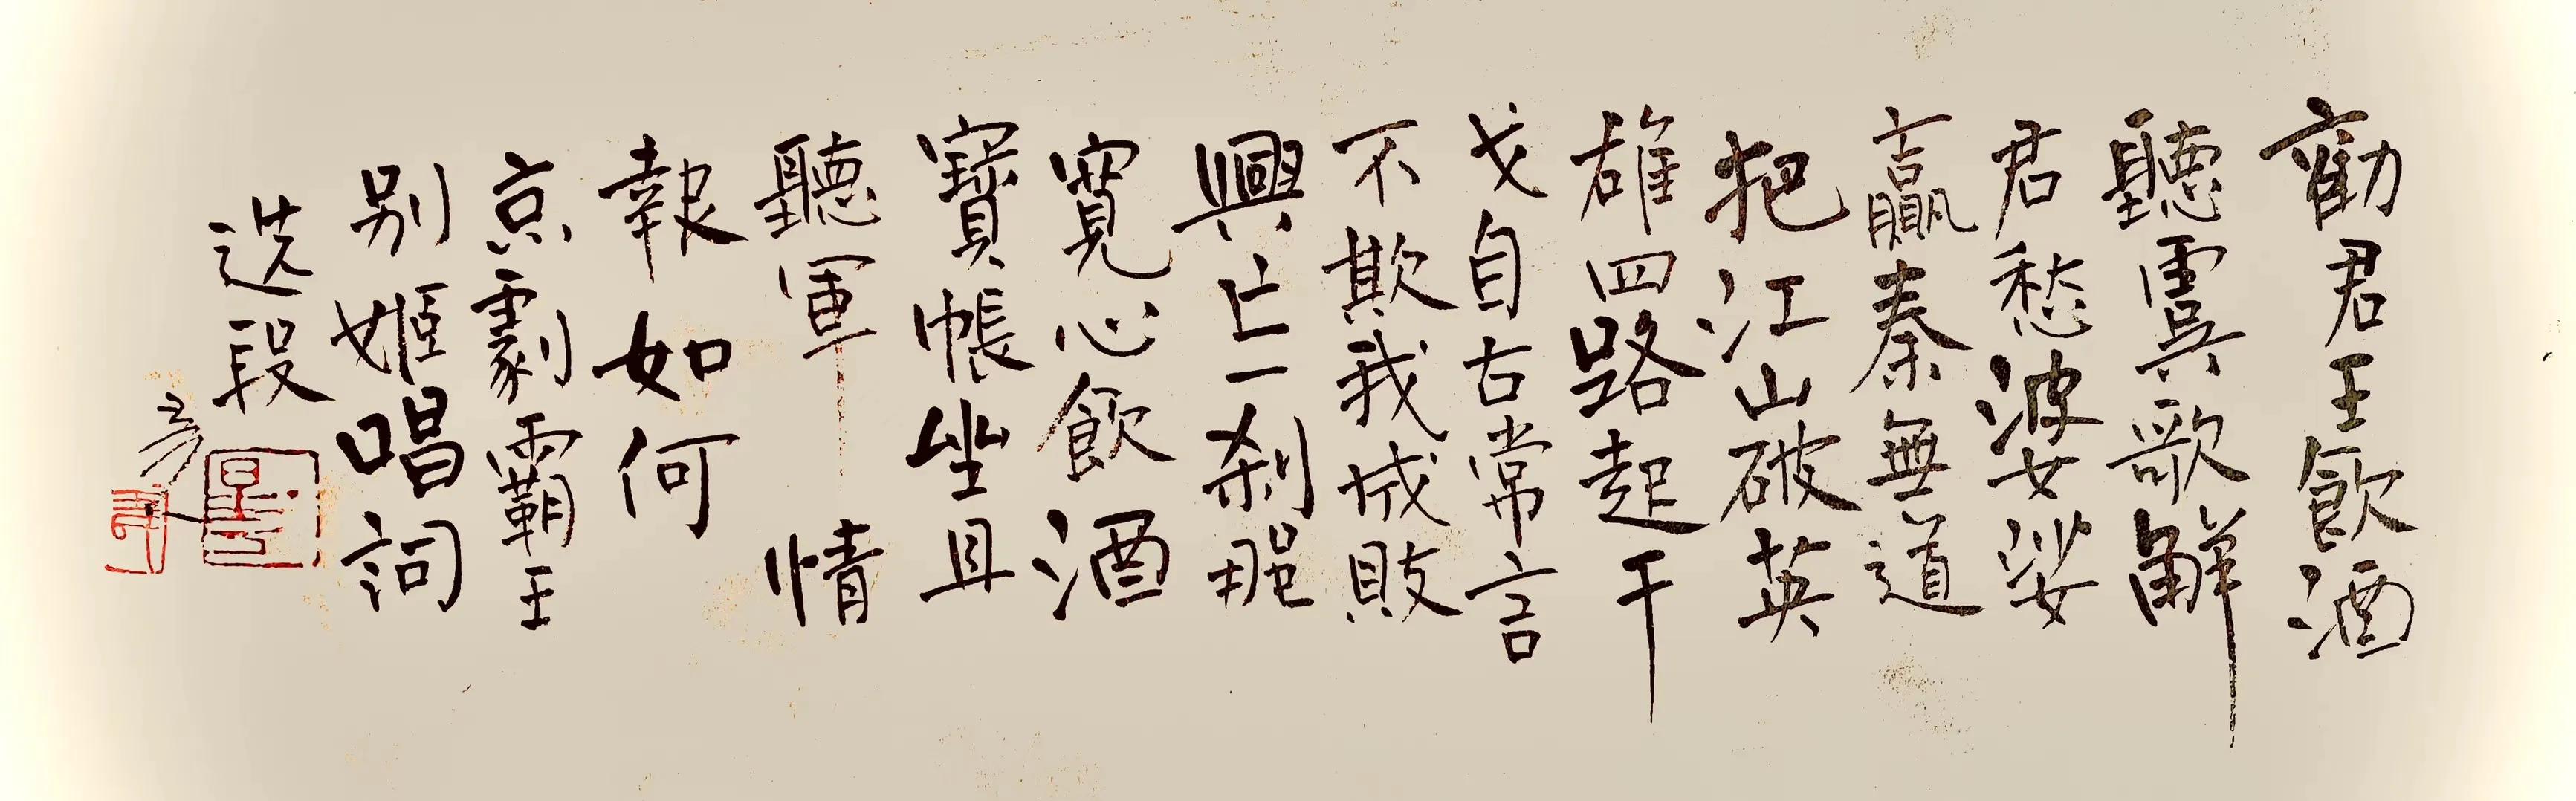 勸君王飲酒
聽虞歌解
君愁婆娑
嬴秦無道
把江山破英
雄四路起干
戈自古常言
不欺我成敗
興亡一刹那
寬心飲酒
寶帳坐且
聽軍情
報如何
京劇霸王
别姬唱詞
选段